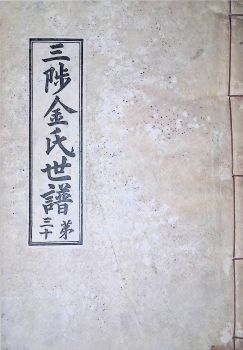 三陟金氏世譜 第三十